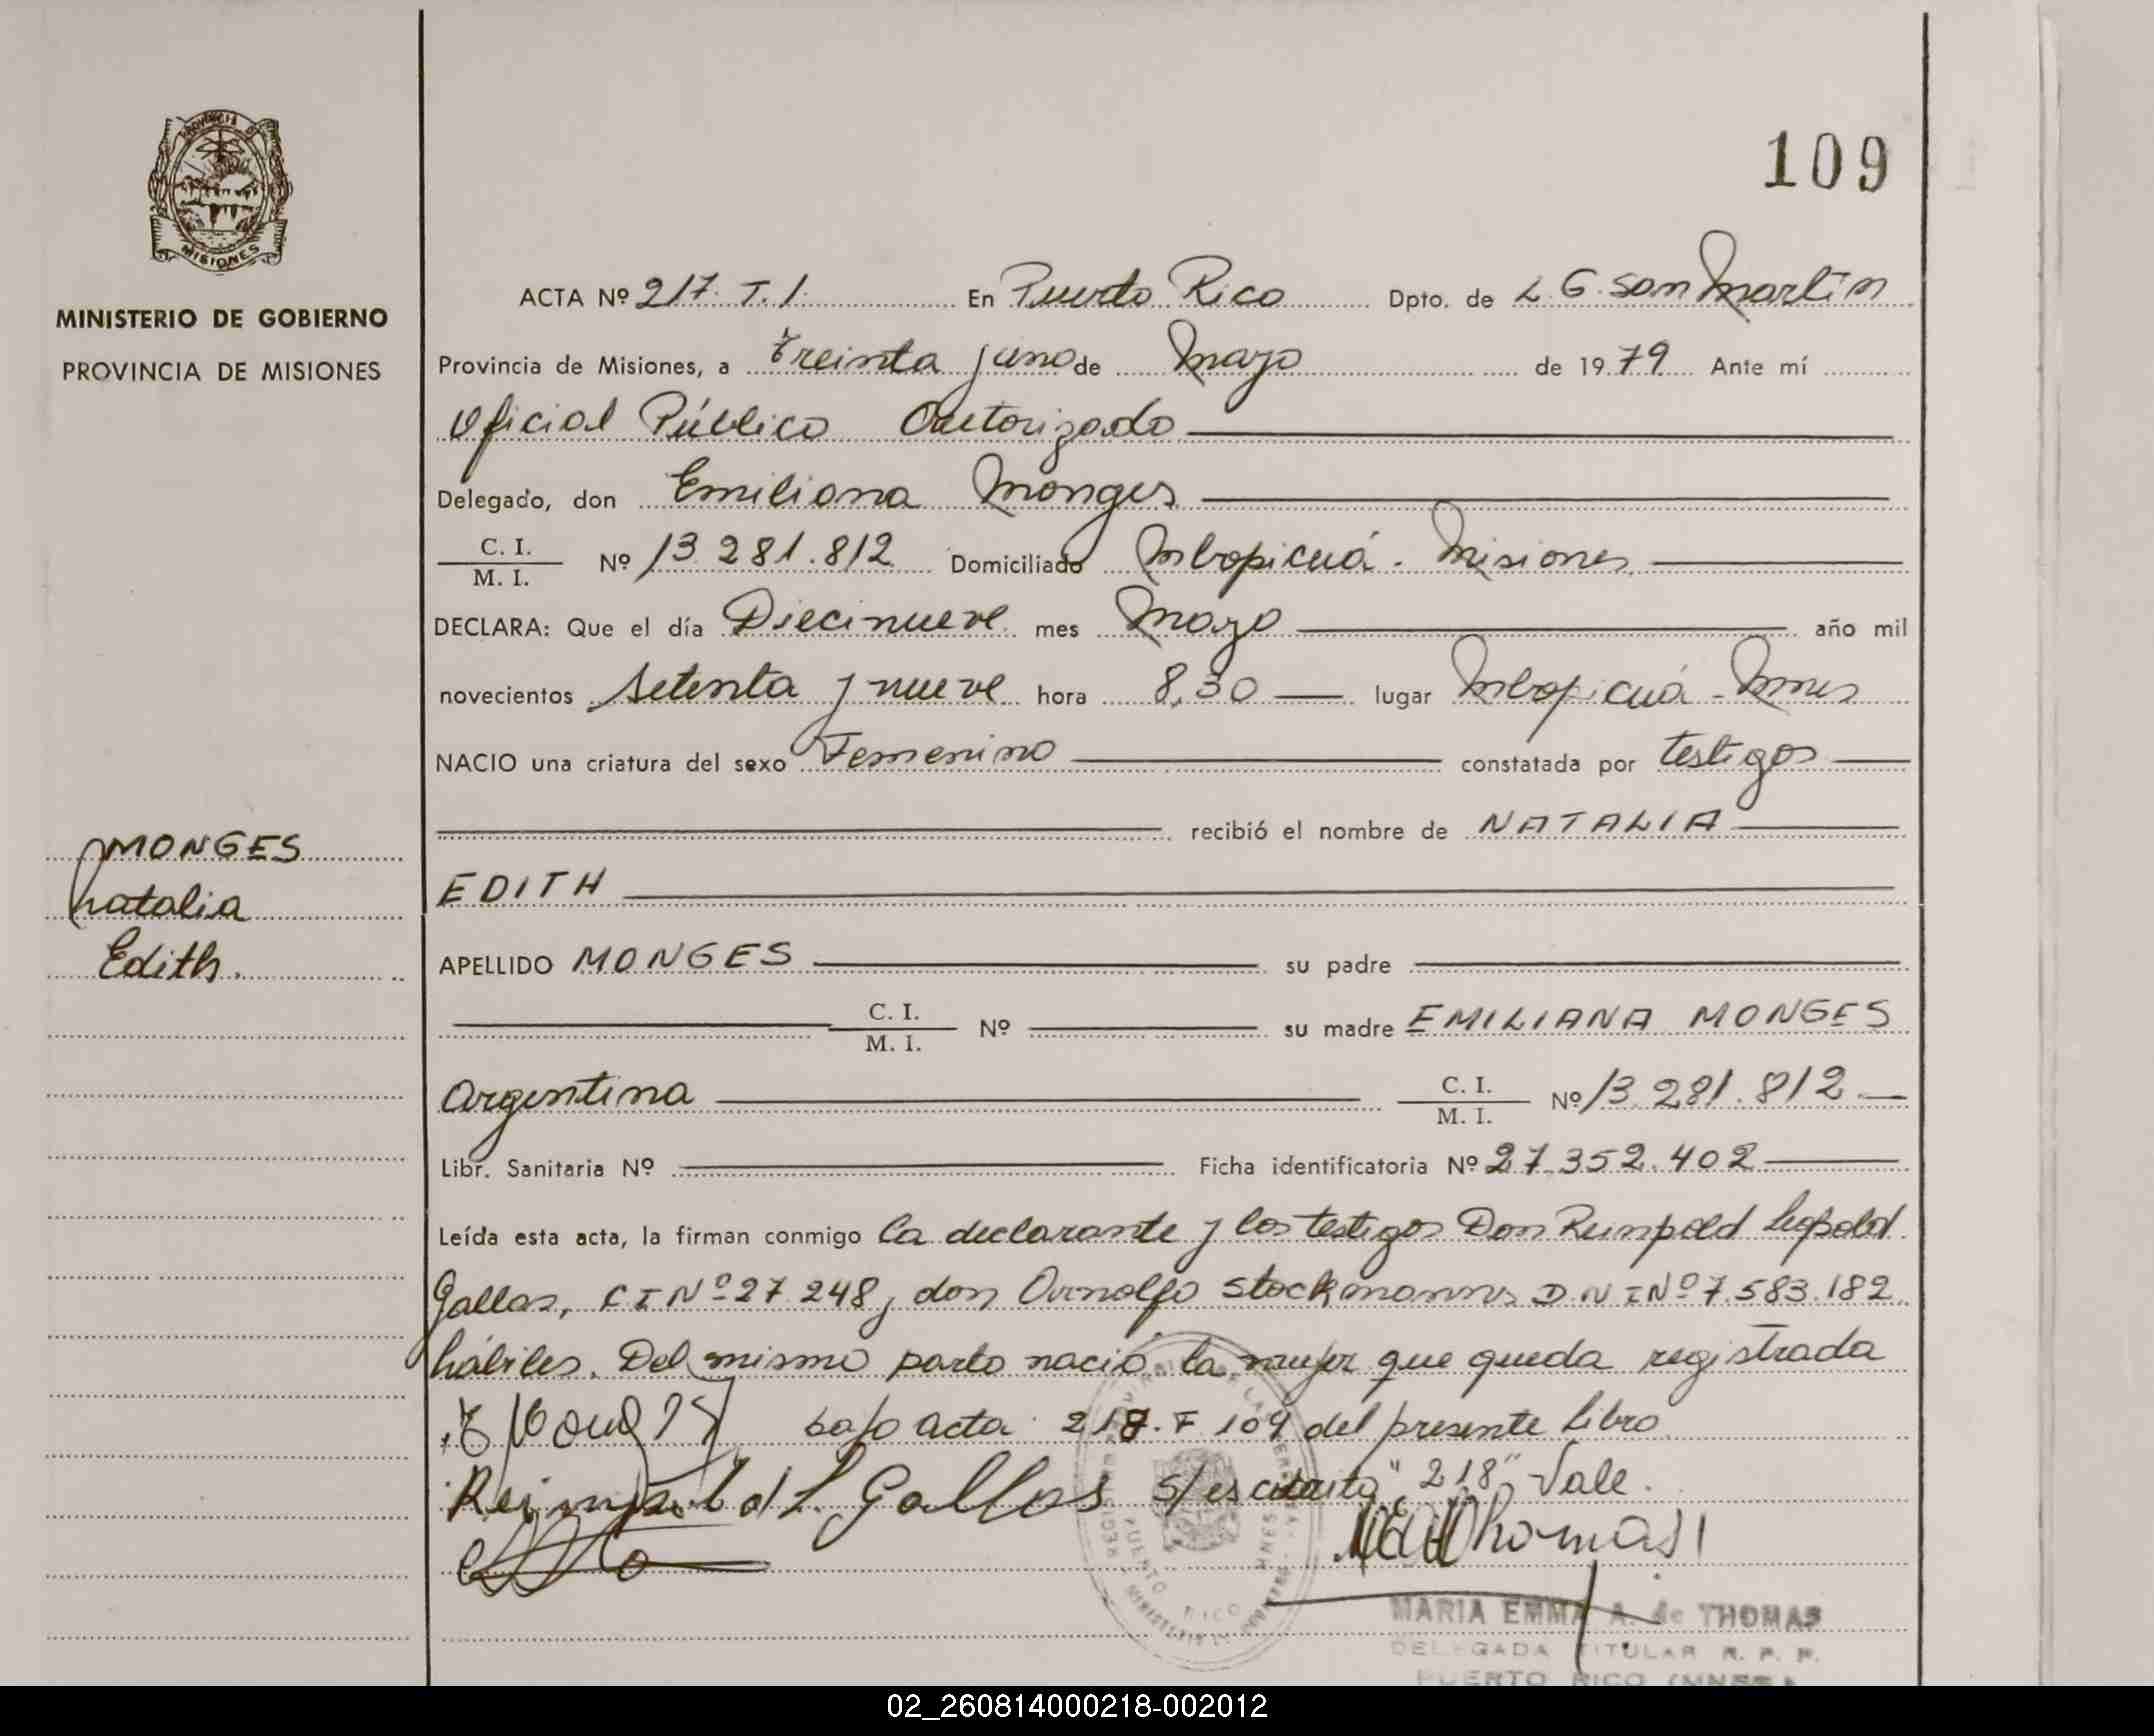 PROVINCIA DE
MISIONES
MINISTERIO DE GOBIERNO
PROVINCIA DE MISIONES
109
ACTA Nº 217. T. I. En Puerto Rico Dpto. de L. G. San Martín
Provincia de Misiones, a treinta y uno de Mayo de 1979 Ante mí
Oficial Público Autorizado
Delegado, don Emiliana Monges
C. I. / M. I. Nº 13.281.812 Domiciliado Mbopicuá - Misiones
DECLARA: Que el día Diecinueve mes Mayo año mil
novecientos setenta y nueve hora 8,30 lugar Mbopicuá - Mnes
NACIO una criatura del sexo Femenino constatada por testigos
recibió el nombre de NATALIA
MONGES
Natalia
Edith.
EDITH
APELLIDO MONGES su padre
C. I. / M. I. Nº su madre EMILIANA MONGES
Argentina C. I. / M. I. Nº 13.281.812
Libr. Sanitaria Nº Ficha identificatoria Nº 27.352.402
Leída esta acta, la firman conmigo la declarante y los testigos Don Reimpold Leopold
Gallas, C I Nº 27.248, don Arnolfo Stockmanns D N I Nº 7.583.182
hábiles. Del mismo parto nació la mujer que queda registrada
bajo acta 218. F 109 del presente libro.
Reimpold L. Gallas S/escrito "218" Vale.
Thomas
PUERTO RICO
MARIA EMMA A. de THOMAS
DELEGADA TITULAR R. P. P.
PUERTO RICO (MNES.)
02_260814000218-002012